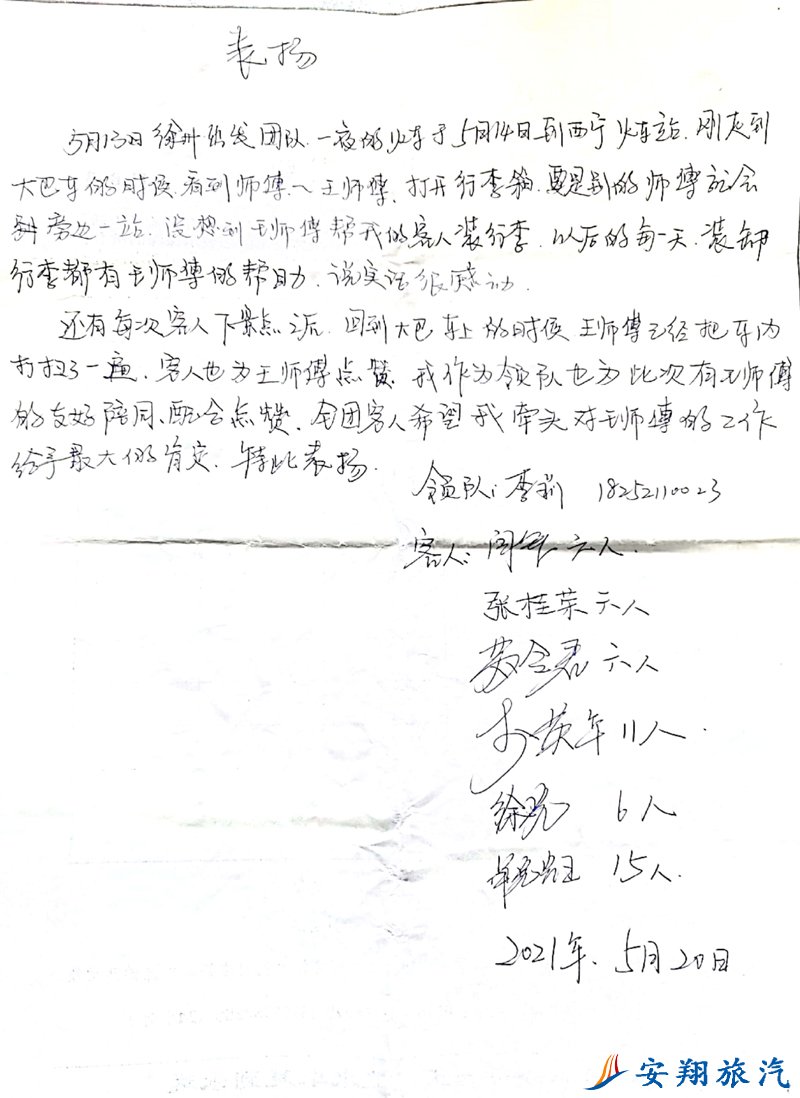 表扬
5月13日徐州出发团队.一夜的火车于5月14日到西宁火车站.刚走到
大巴车的时候.看到师傅~王师傅.打开行李箱.要是别的师傅就会
到旁边一站.没想到王师傅帮我的客人装行李.以后的每一天.装卸
行李都有王师傅的帮助.说实话很感动.
还有每次客人下景点之后.回到大巴车上的时候王师傅已经把车内
打扫了一遍.客人也为王师傅点赞.我作为领队也为此次有王师傅
的友好陪同、配合点赞.全团客人希望我牵头对王师傅的工作
给予最大的肯定.特此表扬.
领队:李莉 18252110023
客人:闫 六人.
张桂荣 六人
六人
英年 11人.
徐亮 6人
15人.
2021年.5月20日
安翔旅汽